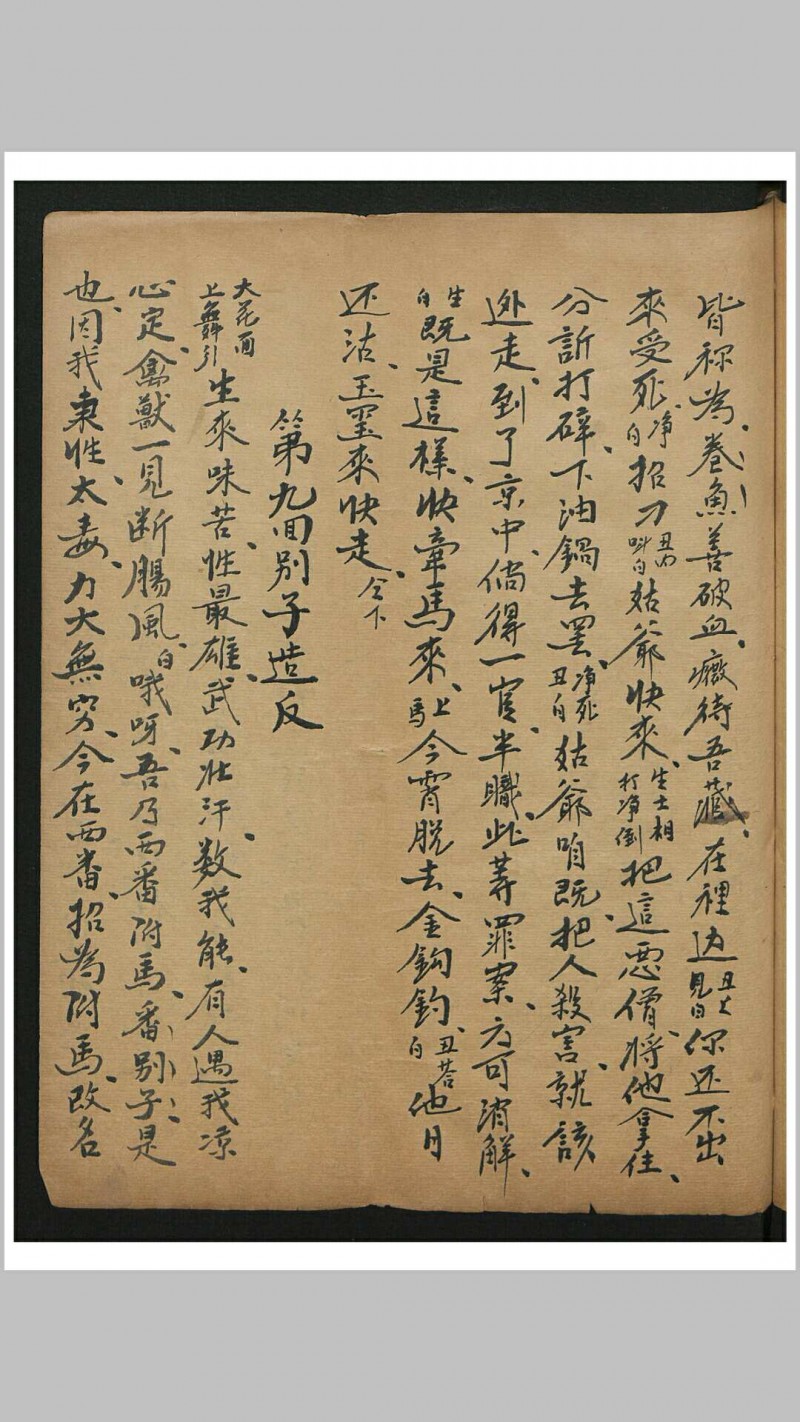 皆称為卷魚善破血癥待吾藏在裡边丑上見白你还不出
來受死净白招刀丑内叫白姑爺快來生士相打净倒把這惡僧將他拿住
分訴打碎下油鍋去罢净死丑白姑爺咱既把人殺害就該
逃走到了京中倘得一官半職此等罪案方可消解
生白既是這樣快牽馬來上馬今宵脱去金鈎釣丑荅白他日
还沽玉壐來快走仝下
第九回别子造反
大花面上舞引生來味苦性最雄武功壮汗数我能有人遇我凉
心定禽獸一見断腸風白哦呀吾乃西番附馬番别子是
也因我秉性太毒力大無穷今在西番招為附馬改名